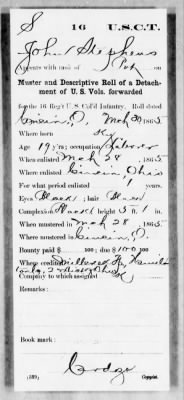 S 16 U.S.C.T.
John Stephens
Appears with rank of Pvt on
Muster and Descriptive Roll of a Detach-
ment of U. S. Vols. forwarded
for the 16 Reg't U. S. Col'd Infantry. Roll dated
Cincin, O. Mch 30 1865
Where born Ky
Age 19 y'rs; occupation Laborer
When enlisted Mch 28, 1865
Where enlisted Cincin, Ohio
For what period enlisted 1 years
Eyes Black; hair Black
Complexion Black; height 5 ft. 1 in.
When mustered in Mch 28, 1865
Where mustered in Cincin, O.
Bounty paid $ 100; due $ 100 100
Where credited Millcreek Hamilton
Co, 2 Ohio
Company to which assigned
Remarks:
Book mark:
(339) Copyist.